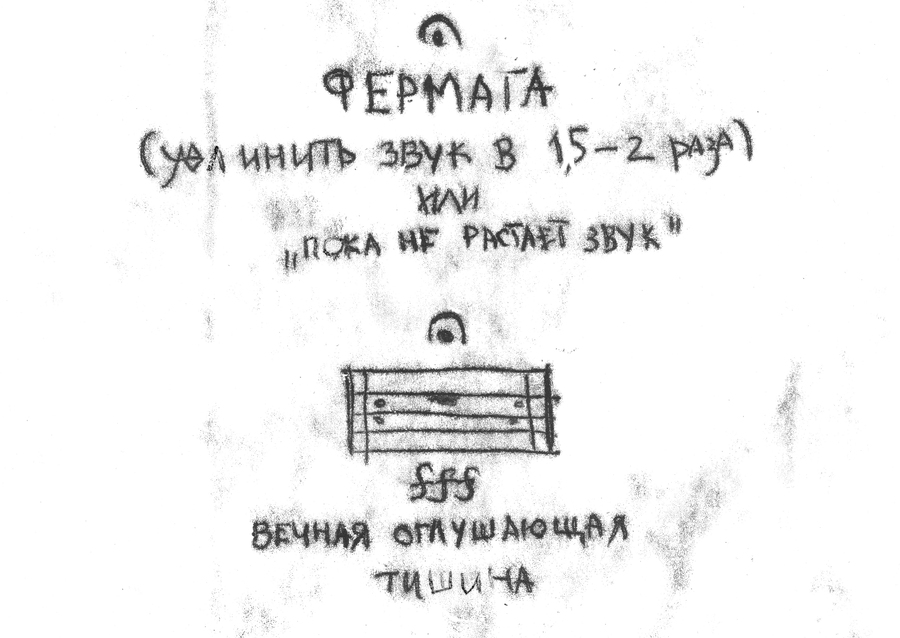 ФЕРМАТА
(УДЛИНИТЬ ЗВУК В 1,5–2 РАЗА)
ИЛИ
„ПОКА НЕ РАСТАЕТ ЗВУК"
fff
ВЕЧНАЯ ОГЛУШАЮЩАЯ
ТИШИНА